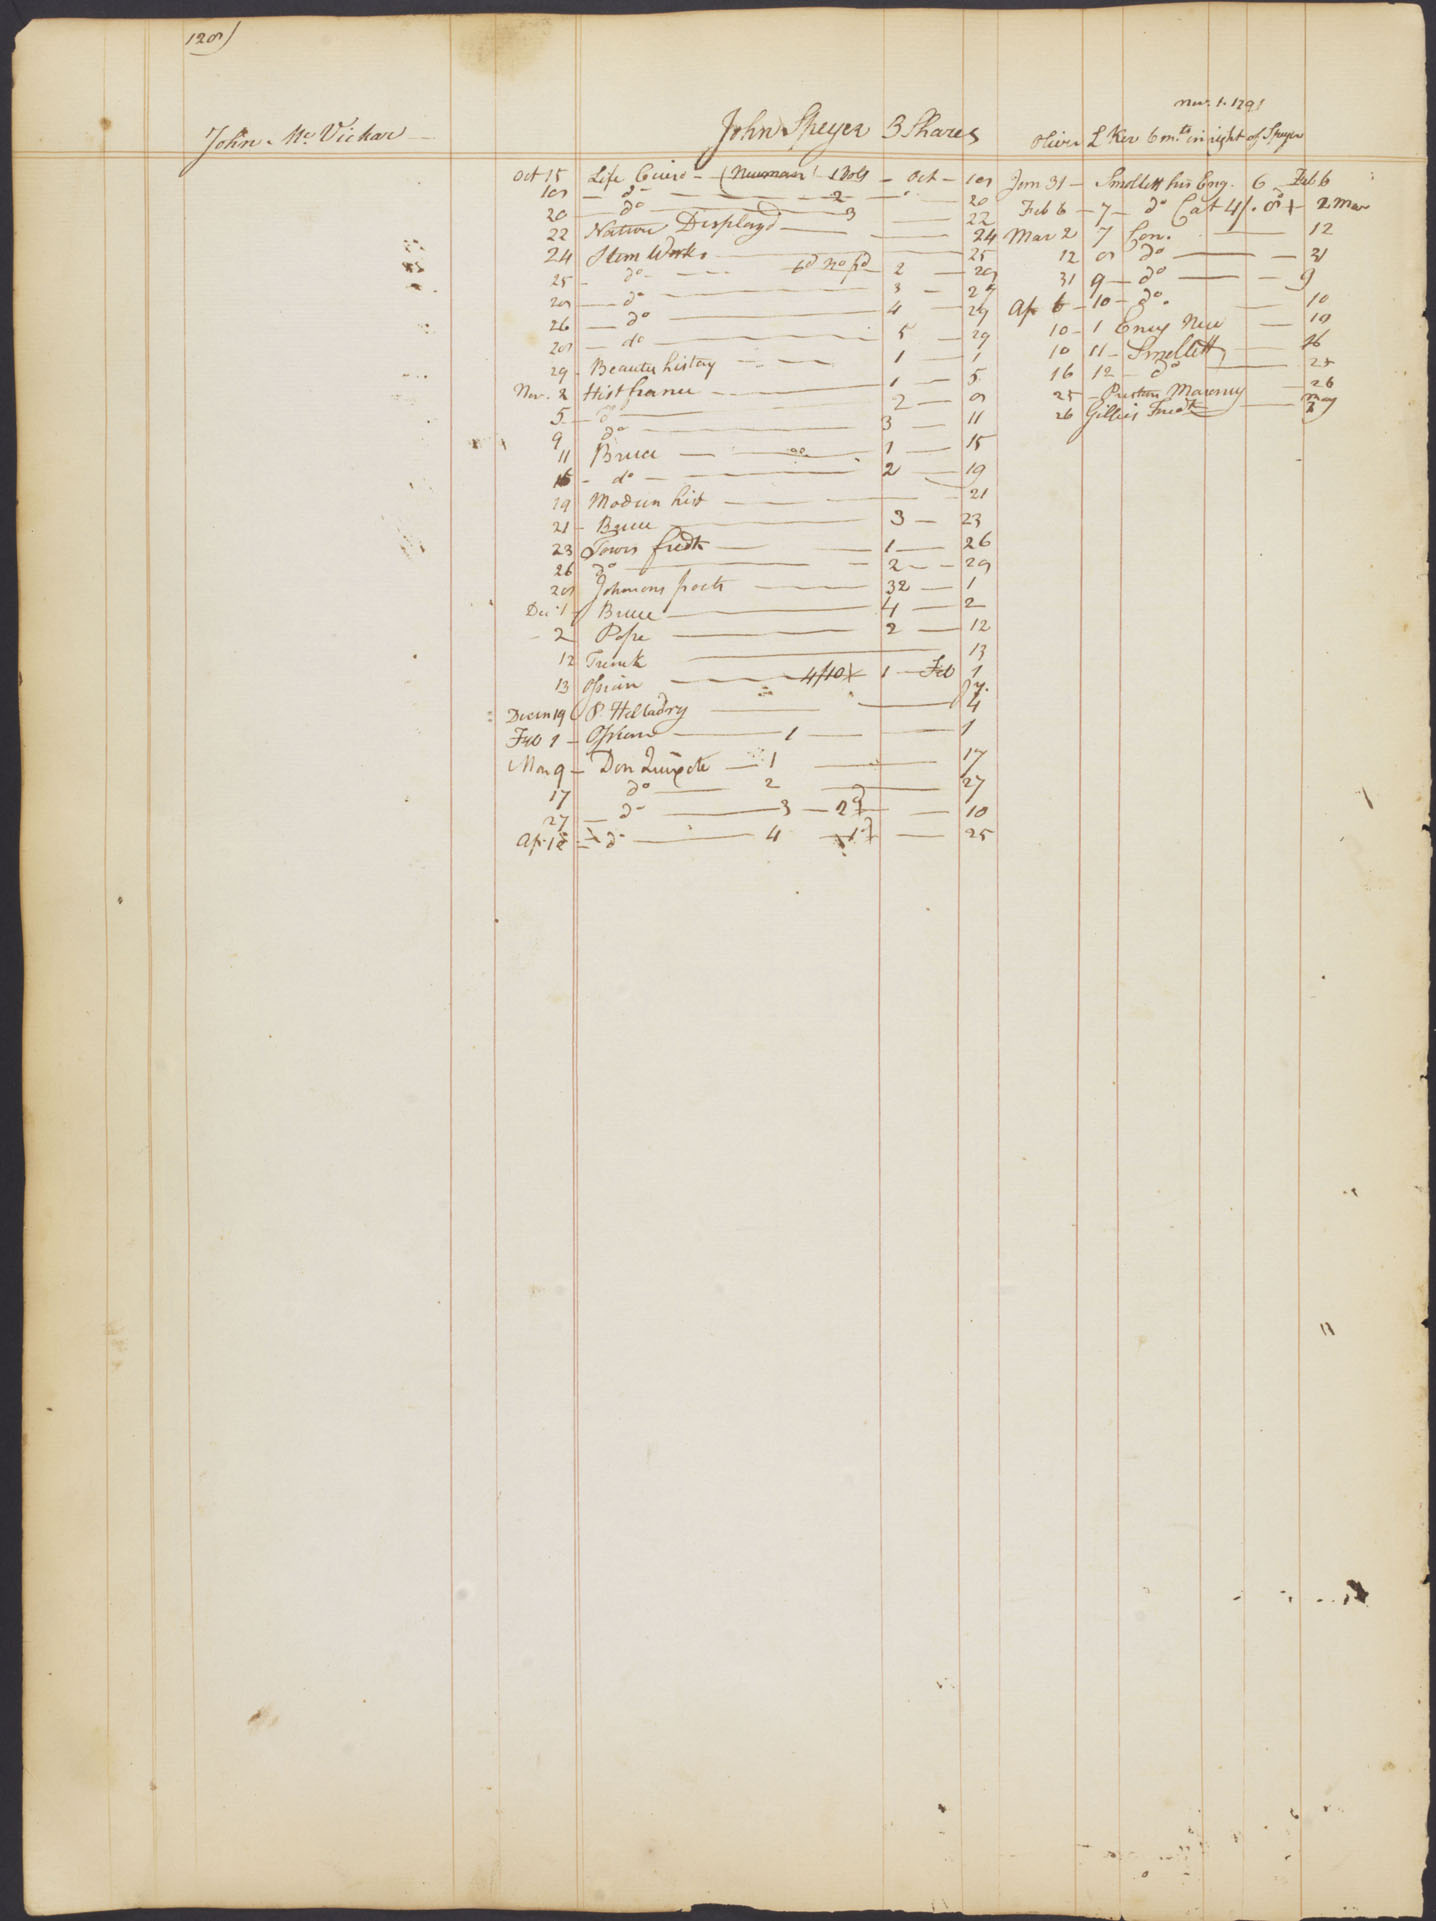 128
John McVickar
John Speyer 3 Shares
Oct 15 Life Cicero (Newman) 1 Vol Oct 18
18 do 2 20
20 do 3 22
22 Nature Displayd 24
24 Works 25
25 do 6d no pd 2 28
28 do 3 29
26 do 4 29
28 do 5 29
29 Beauties history 1 1
Nov. 2 Hist france 1 5
5 do 2 8
9 do 3 11
11 Bruce 1 15
15 do 2 19
19 Modern hist 21
21 Bruce 3 23
23 Towers fredk 1 26
26 do 2 29
28 Johnsons poets 32 1
Dec 1 Bruce 4 2
2 Pope 2 12
12 Trenck 13
13 Ossian 4/10 1 Feb 1
Decem 19 P. 4
Feb 1 Ossian 1 1
Mar 9 Don Quixote 1 17
17 do 2 27
27 do 3 2d 10
Ap 12 do 4 1d 25
Nov. 1. 1791
Oliver L Ker 6 mts in right of Speyer
Jan 31 Smollett his Eng. 6 Feb 6
Feb 6 7 do Cat 4/. 2 Mar
Mar 2 7 Con. 12
12 8 do 31
31 9 do 9
Ap 6 10 do 10
10 1 Ency New 10
10 11 Smollett 16
16 12 do 25
25 Preston Masonry 26
26 Gillies Fredk May 2